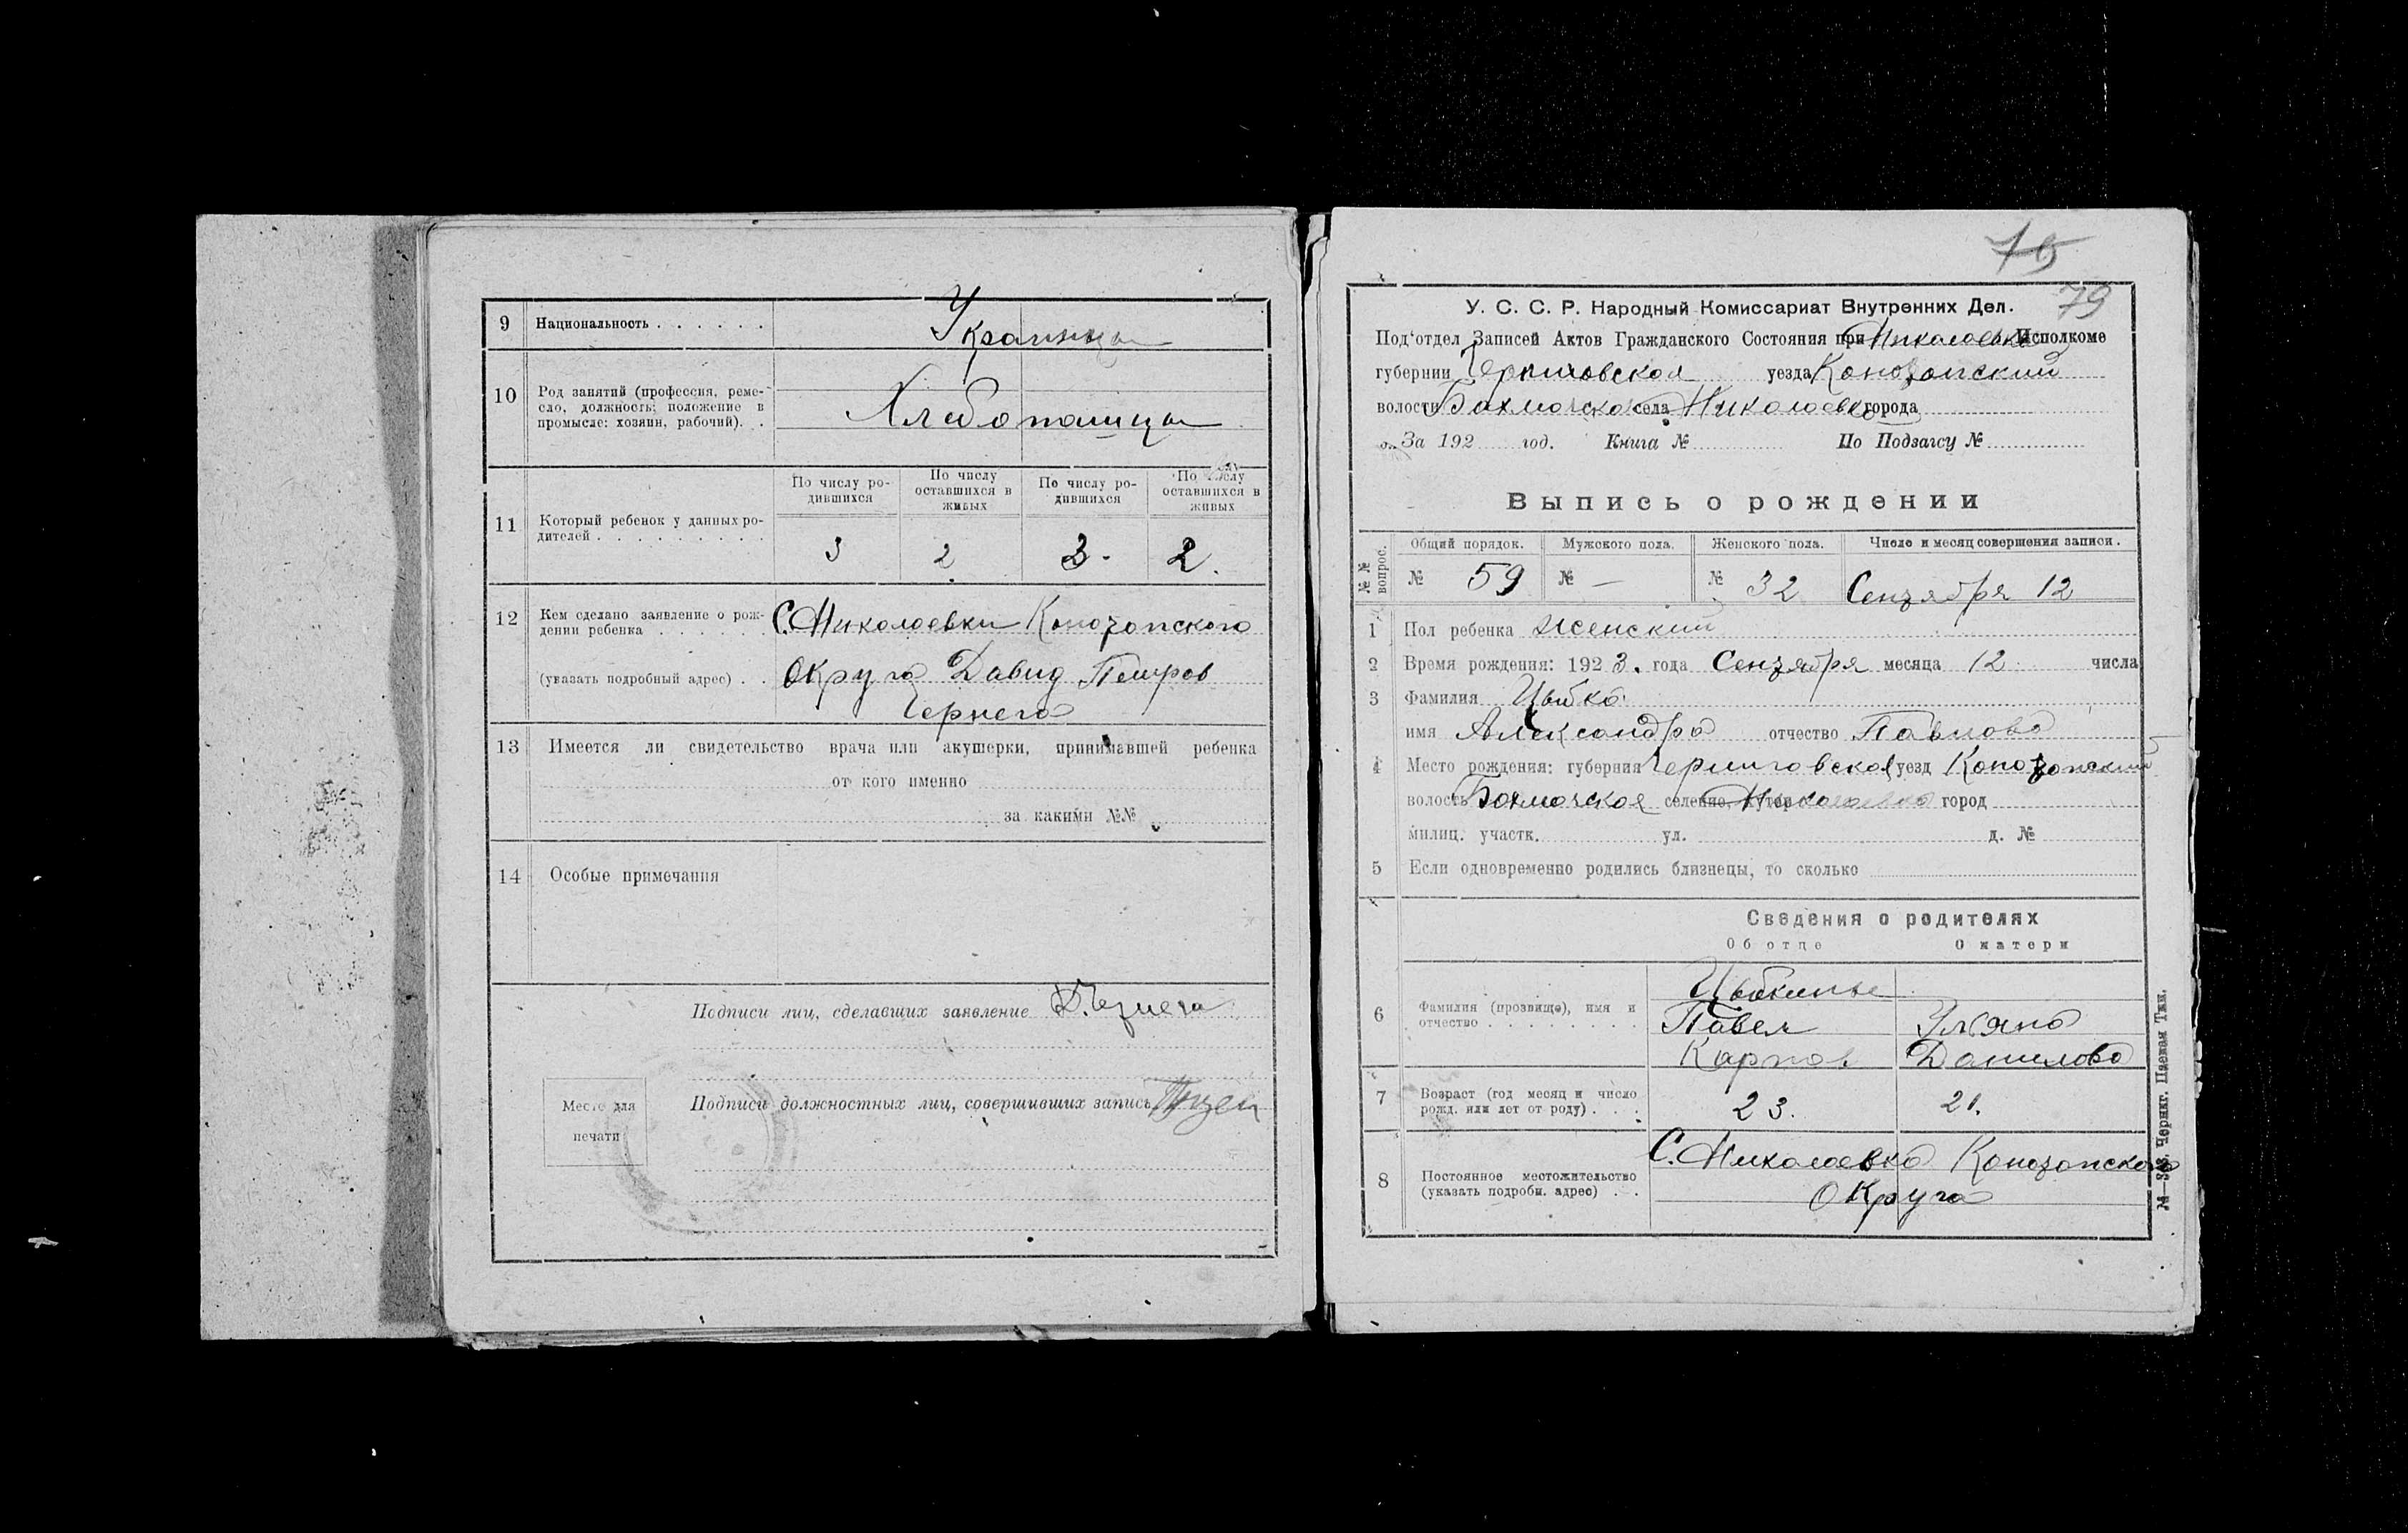 9 Национальность . . . . . . Украинцы
10 Род занятий (профессия, реме-
сло, должность; положение в
промысле: хозяин, рабочий). . Хлебопашцы
11 Который ребенок у данных ро-
дителей . . . . . . . . .
По числу ро-
дившихся
По числу
оставшихся в
живых
По числу ро-
дившихся
По числу
оставшихся в
живых
3 2 3. 2.
12 Кем сделано заявление о рож-
дении ребенка . . . . . . С. Николаевки Конотопского
(указать подробный адрес) . . Округа Давид Петров
Чернега
13 Имеется ли свидетельство врача или акушерки, принимавшей ребенка
от кого именно
за какими №№
14 Особые примечания
Подписи лиц, сделавших заявление Д. Чернега
Место для
печати
Подписи должностных лиц, совершивших запись
75
79
У. С. С. Р. Народный Комиссариат Внутренних Дел.
Под'отдел Записей Актов Гражданского Состояния при Николаевском Исполкоме
губернии Черниговская уезда Конотопский
волости Бахмачская села Николаевка города
За 192 год. Книга № По Подзагсу №
Выпись о рождении
№№ вопрос.
Общий порядок. Мужского пола. Женского пола. Число и месяц совершения записи.
№ 59 № — № 32 Сентября 12
1 Пол ребенка женский
2 Время рождения: 1923. года Сентября месяца 12 числа
3 Фамилия Цыбко
имя Александра отчество Павлова
4 Место рождения: губерния Черниговская уезд Конотопский
волость Бахмачская селение, хутор Николаевка город
милиц. участк. ул. д. №
5 Если одновременно родились близнецы, то сколько
Сведения о родителях
Об отце О матери
6 Фамилия (прозвище), имя и
отчество . . . . . . . .
Павел Ульяна
Карпов Данилова
7 Возраст (год месяц и число
рожд. или лет от роду) . . . 23. 21.
8 Постоянное местожительство
(указать подробн. адрес) . . . С. Николаевка Конотопского
Округа